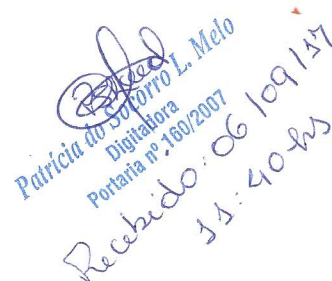 Patrícia do Socorro L. Melo
Digitadora
Portaria nº 160/2007
Recebido: 06/09/17
11:40 hs